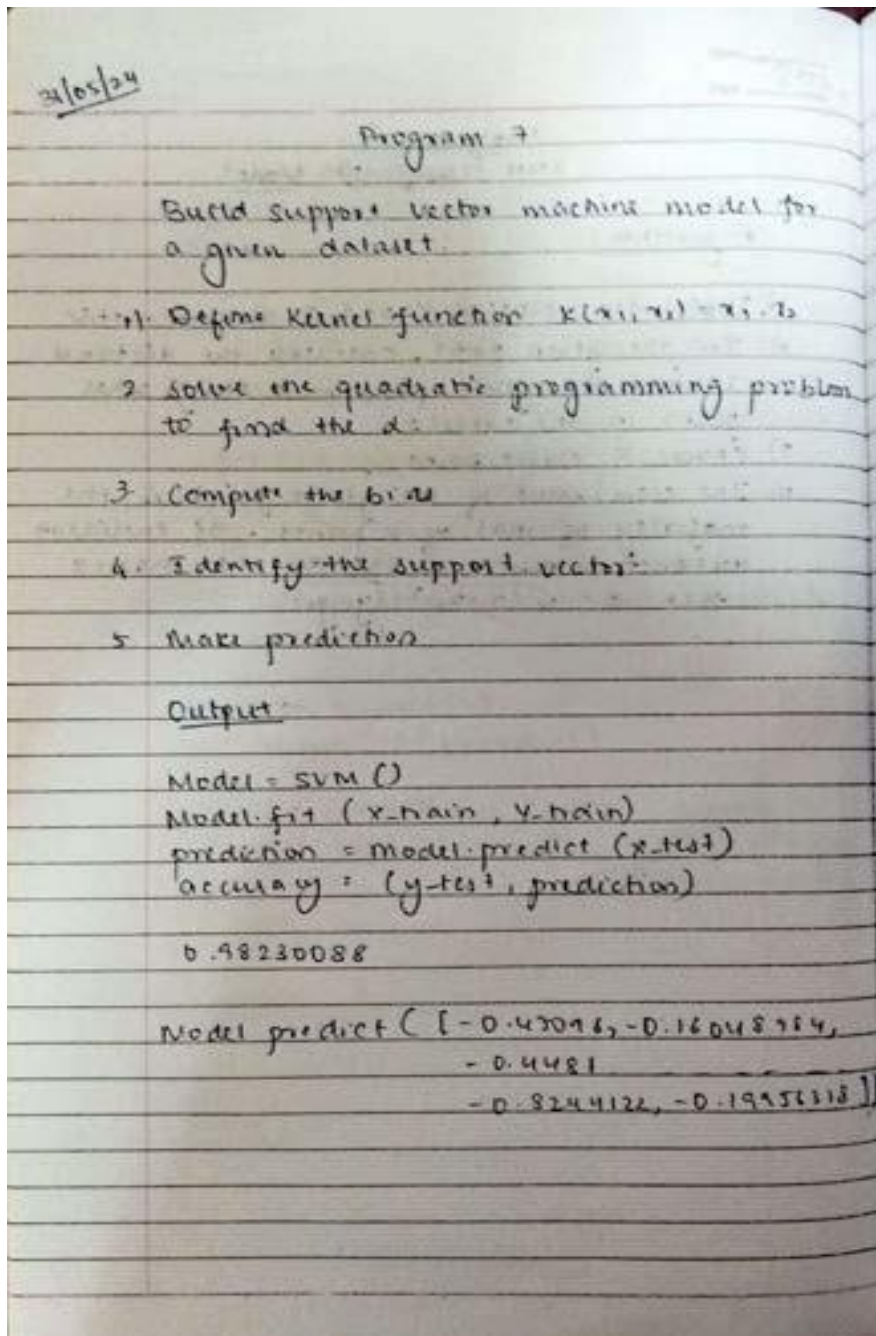 /05/24
Program - 7
Build support vector machine model for
a given dataset.
1. Define Kernel function K(x1, x2) = x1 . x2
2 solve the quadratic programming problem
to find the α.
3 Compute the bias
4. Identify the support vector
5 Make prediction
Output
Model = SVM ()
Model.fit (X_train, Y_train)
prediction = model.predict (x_test)
accuracy = (y_test, prediction)
0.98230088
Model predict ( [-0.47096, -0.16048984,
-0.4481 _ _ _ _
-0.8244122, -0.19956318 ])